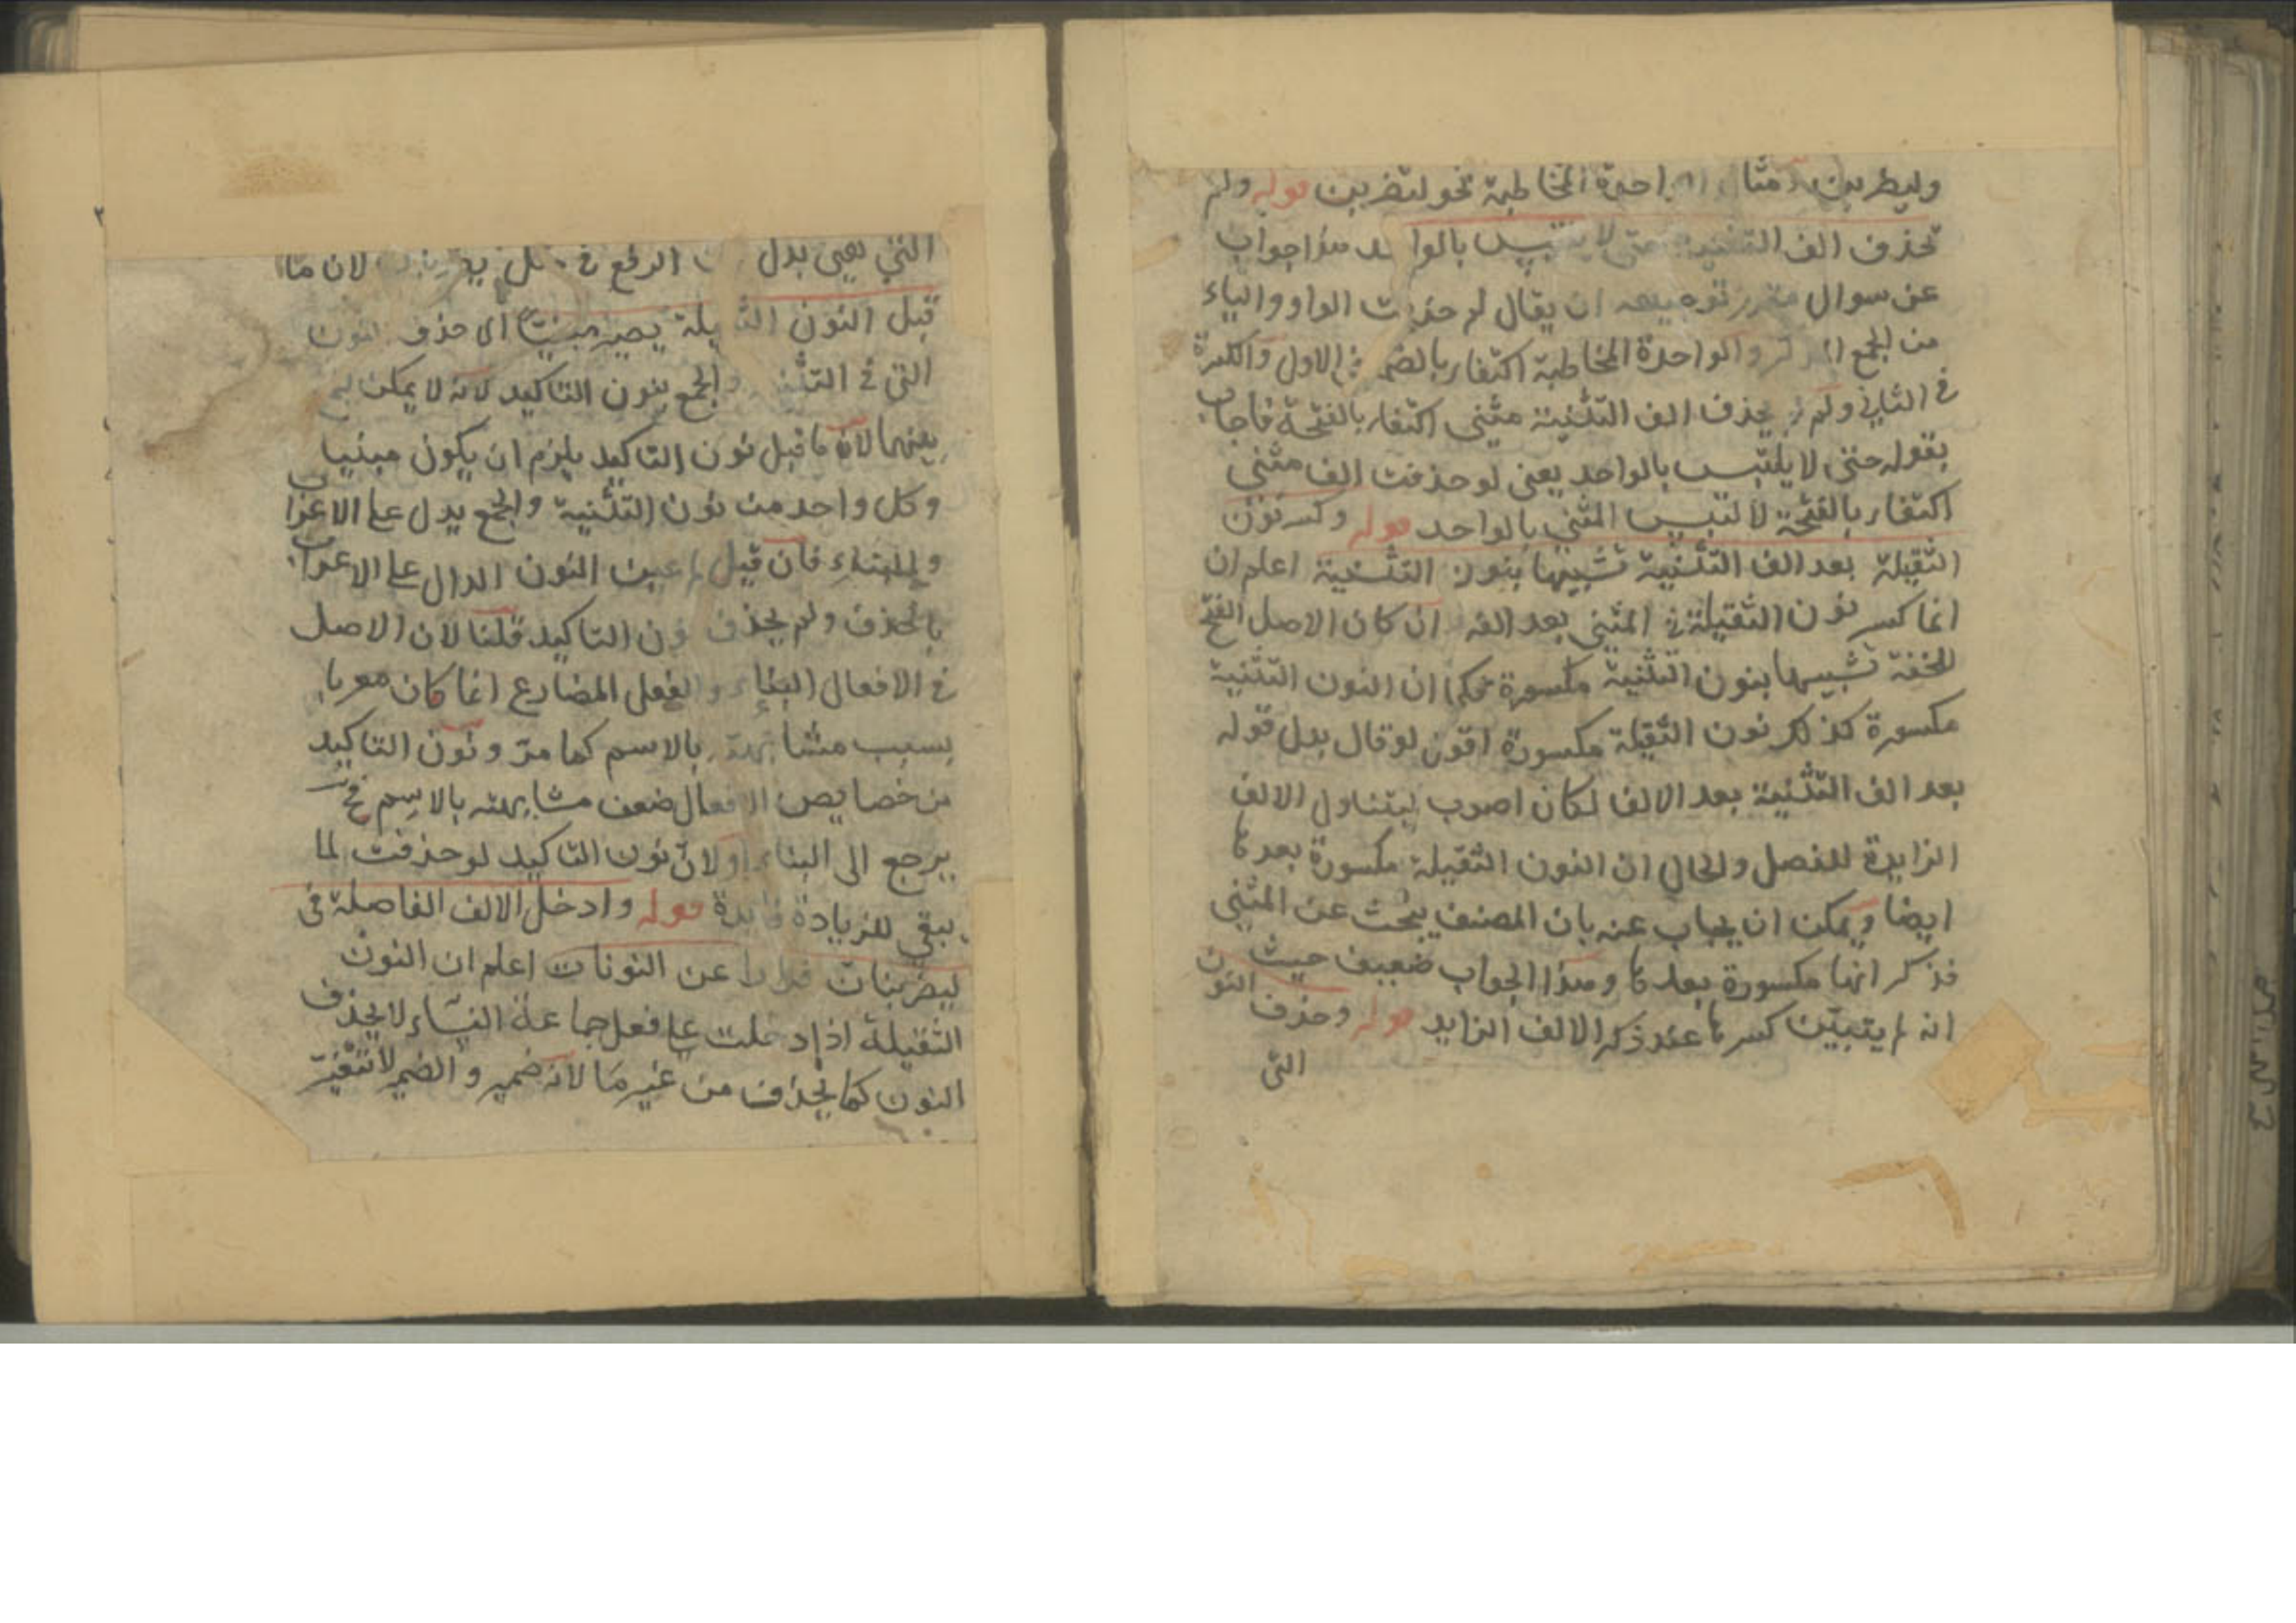 وليضربن مثال الواحدة المخاطبة نحو لتضربن قوله ولم
تحذف الف التثنية حتى لا يلتبس بالواحد هذا جواب
عن سوال مقدر توجيهه ان يقال لم حذفت الواو والياء
من الجمع المذكر والواحدة المخاطبة اكتفاء بالضمة في الاول والكسرة
في الثاني ولم يحذف الف التثنية مثنى اكتفاء بالفتحة فاجاب
بقوله حتى لا يلتبس بالواحد يعنى لو حذفت الف مثنى
اكتفاء بالفتحة لالتبس المثنى بالواحد قوله وكسر نون
الثقيلة بعد الف التثنية تشبيها بنون التثنية اعلم ان
انما كسر نون الثقيلة في المثنى بعد الفه ان كان الاصل الفتح
للخفة تشبيها بنون التثنية مكسورة فكما ان النون التثنية
مكسورة كذلك نون الثقيلة مكسورة اقول لو قال بدل قوله
بعد الف التثنية بعد الالف لكان اصوب ليتناول الالف
الزايدة للفصل والحال ان النون الثقيلة مكسورة بعدها
ايضا ويمكن ان يجاب عنه بان المصنف يبحث عن المثنى
فذكر انها مكسورة بعدها وهذا الجواب ضعيف حيث
انه لم يتبين كسرها عند ذكر الالف الزايد قوله وحذف النون
التى
التي يعنى بدل الرفع في مثل لان ما
قبل النون الثقيلة يصير مبنيا الى حذف النون
التى في التثنية والجمع بنون التاكيد لانه لا يمكن
بينهما لان ما قبل نون التاكيد يلزم ان يكون مبنيا
وكل واحد من نون التثنية والجمع يدل على الاعراب
فان قيل لم عين النون الدال على الاعراب
بالحذف ولم يحذف نون التاكيد قلنا لان الاصل
في الافعال البناء والفعل المضارع انما كان معربا
بسبب مشابهته بالاسم كما مر ونون التاكيد
من خصايص الافعال ضعف مشابهته بالاسم فح
يرجع الى البناء ولان نون التاكيد لو حذفت لما
يبقى للزيادة فايدة قوله وادخل الالف الفاصلة فى
ليضربنان فرارا عن النونات اعلم ان النون
الثقيلة اذا دخلت على فعل جماعة النساء لا يحذف
النون كما يحذف من غيرها لانه ضمير والضمير لا يتغير